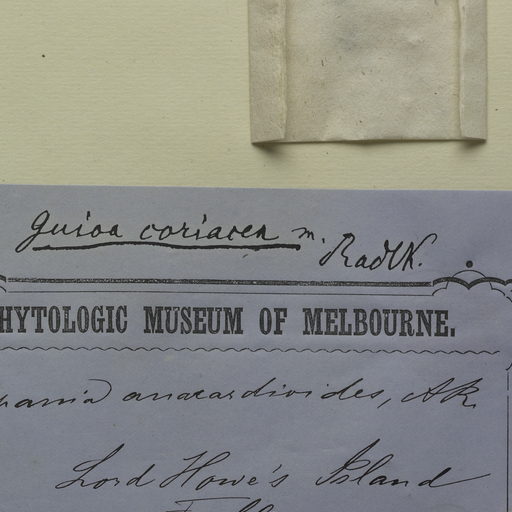 Guioa coriacea m. Radlk.
HYTOLOGIC MUSEUM OF MELBOURNE.
pania anacardioides, A.R.
Lord Howe's Island